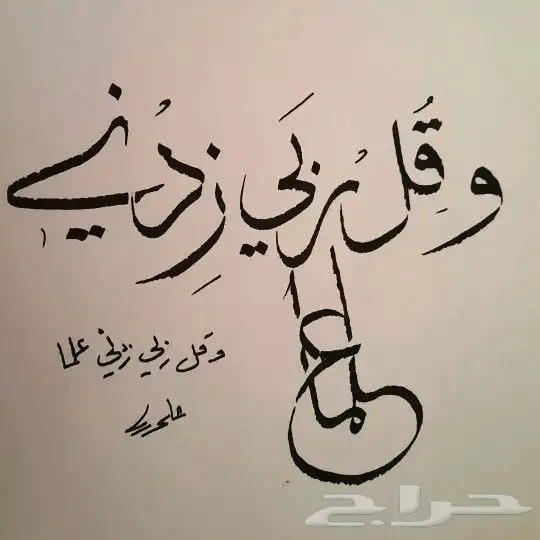 وقل ربي زدني
علما
وقل ربي زدني علما
حراج